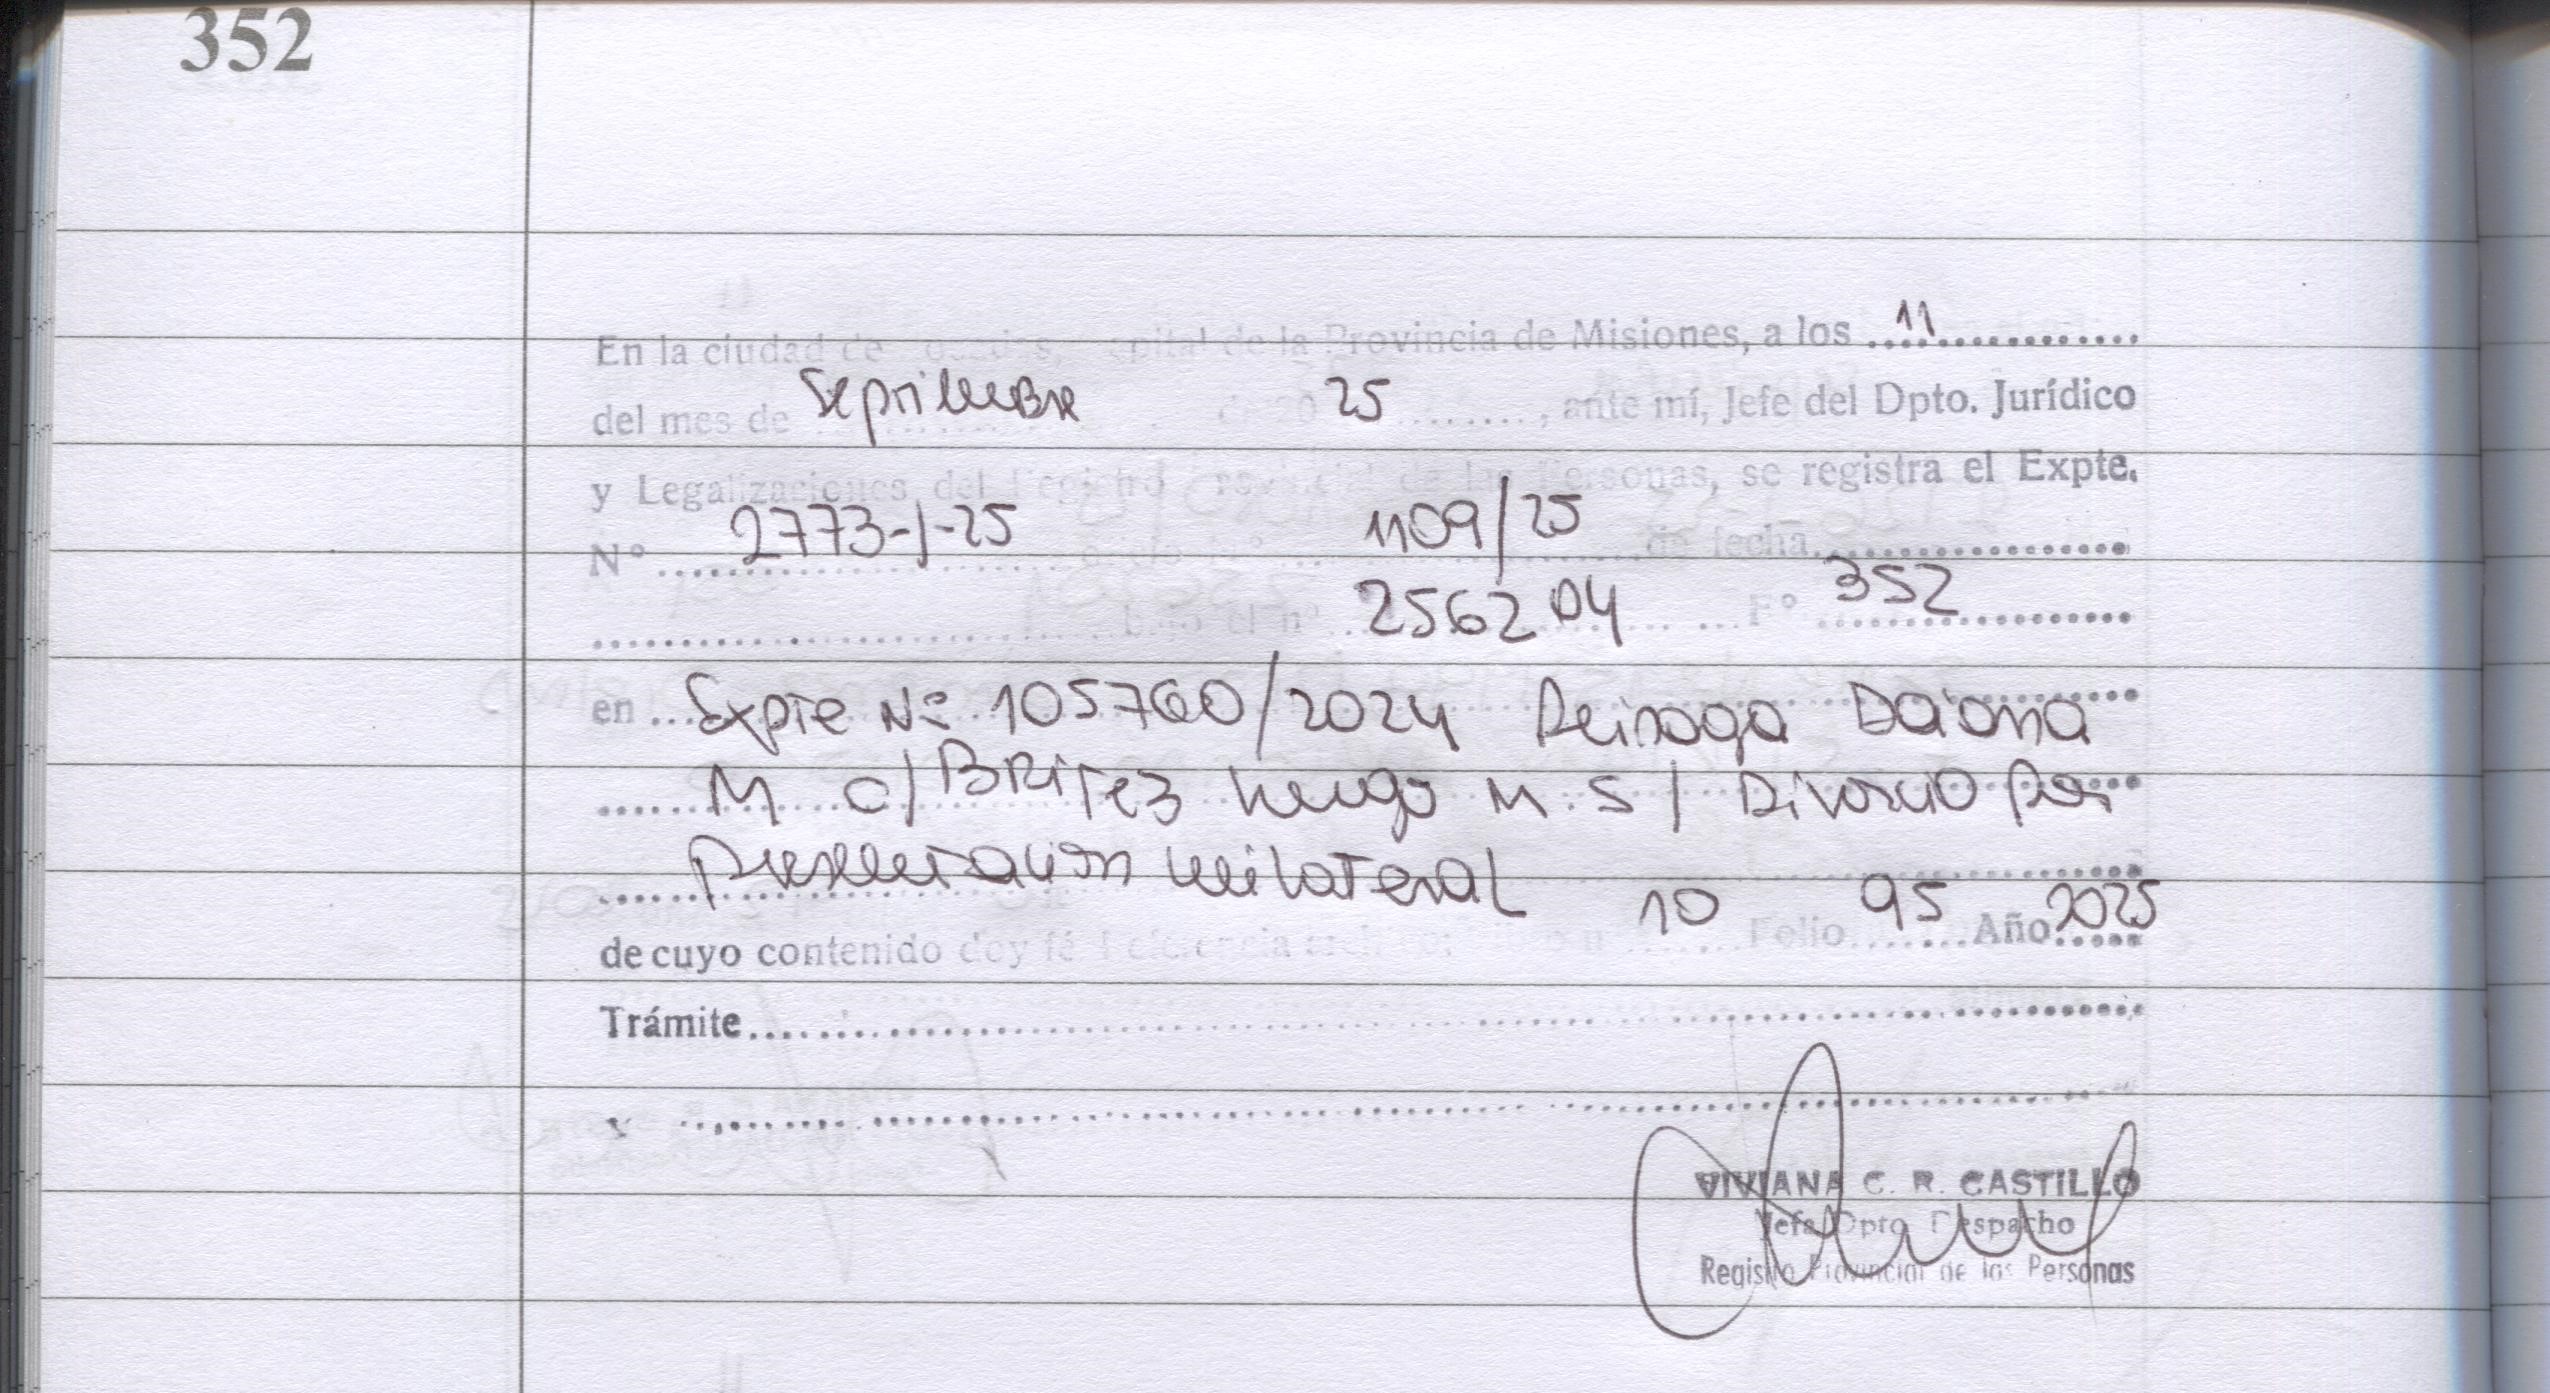 352
En la ciudad de Posadas, capital de la Provincia de Misiones, a los 11
del mes de Septiembre de 20 25, ante mí, Jefe del Dpto. Jurídico
y Legalizaciones del Registro Provincial de las Personas, se registra el Expte.
N° 2773-J-25 1109/25 de fecha
bajo el n° 256204 F° 352
en Expte N° 105760/2024 Daiana
M c/ BRiTez Hugo M. S/ Divorcio por
presentación unilateral 10 95 2025
de cuyo contenido doy fé. Referencia Folio Año
Trámite
VIVIANA C. R. CASTILLO
Jefa Dpto. Despacho
Registro Provincial de las Personas